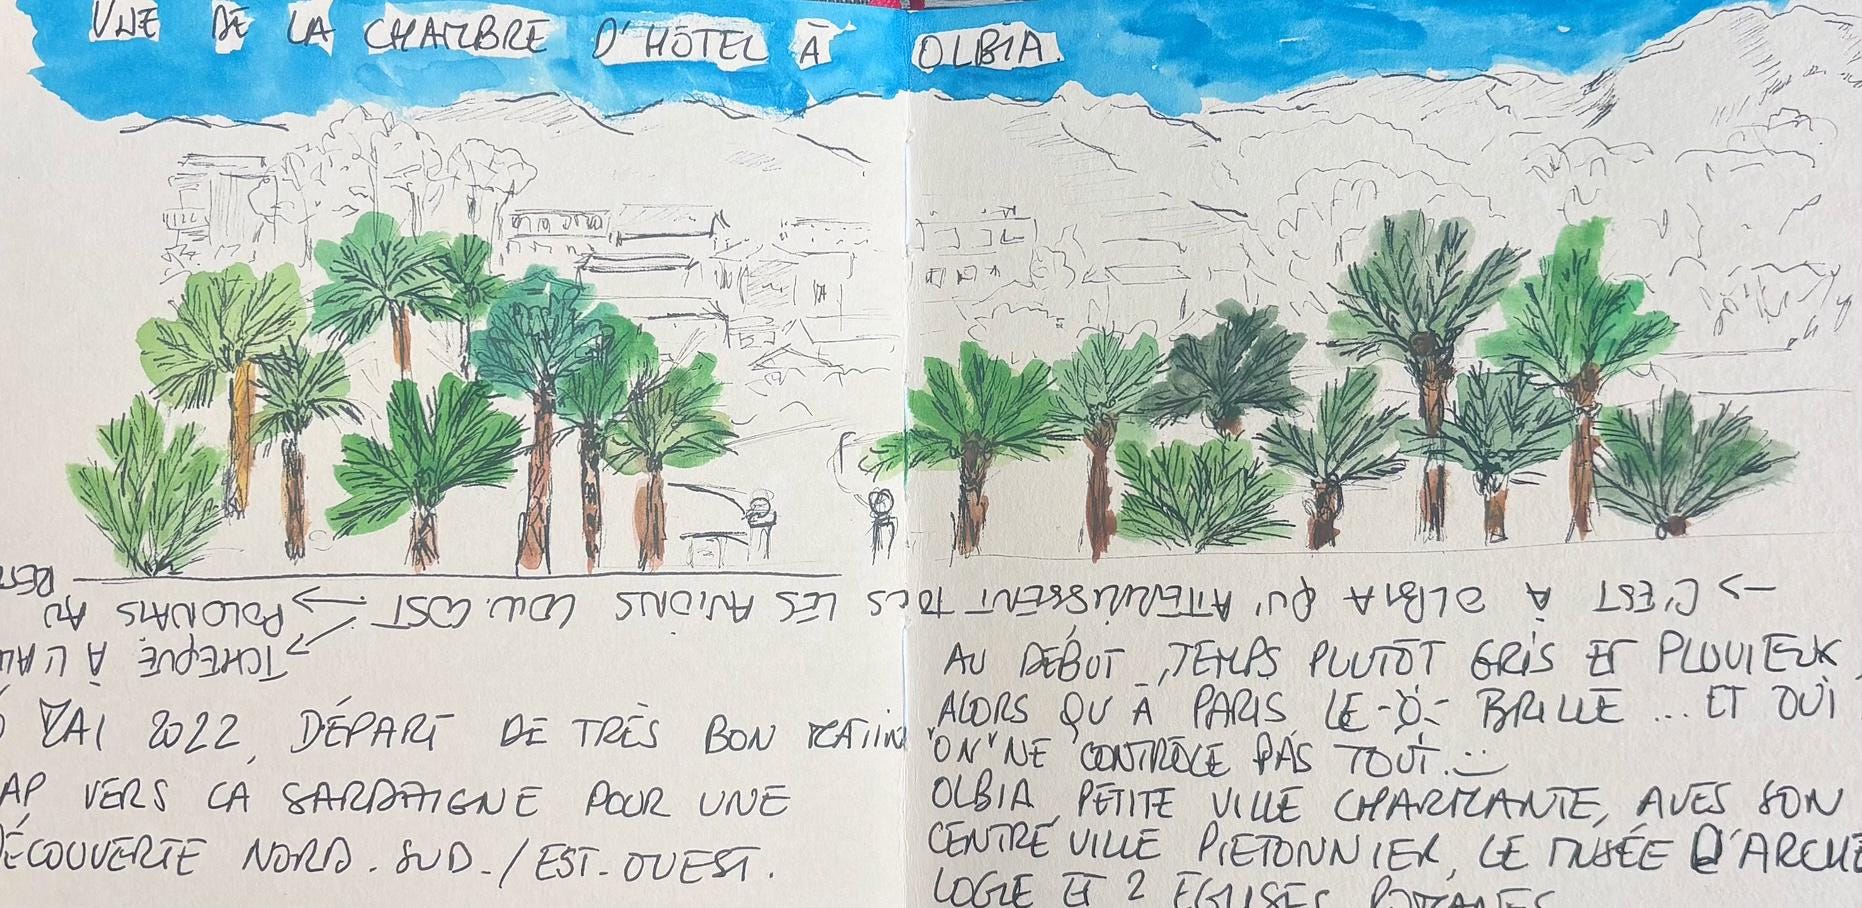 VUE DE LA CHAMBRE D'HÔTEL À OLBIA.
→ C'EST À OLBIA QU'ATERRISSENT TOUS LES AVIONS LOW.COST → POLONAIS AU
→ TCHEQUE À
MAI 2022, DÉPART DE TRÈS BON MATIN
AP VERS LA SARDAIGNE POUR UNE
ÉCOUVERTE NORD.SUD./EST-OUEST.
AU DÉBUT, TEMPS PLUTÔT GRIS ET PLUVIEUX,
ALORS QU'À PARIS LE BRILLE ... ET OUI
"ON" NE CONTRÔLE PAS TOUT.
OLBIA, PETITE VILLE CHARMANTE, AVES SON
CENTRE VILLE PIETONNIER, LE MUSÉE D'ARCHÉ
LOGIE ET 2 EGLISES ROMANES